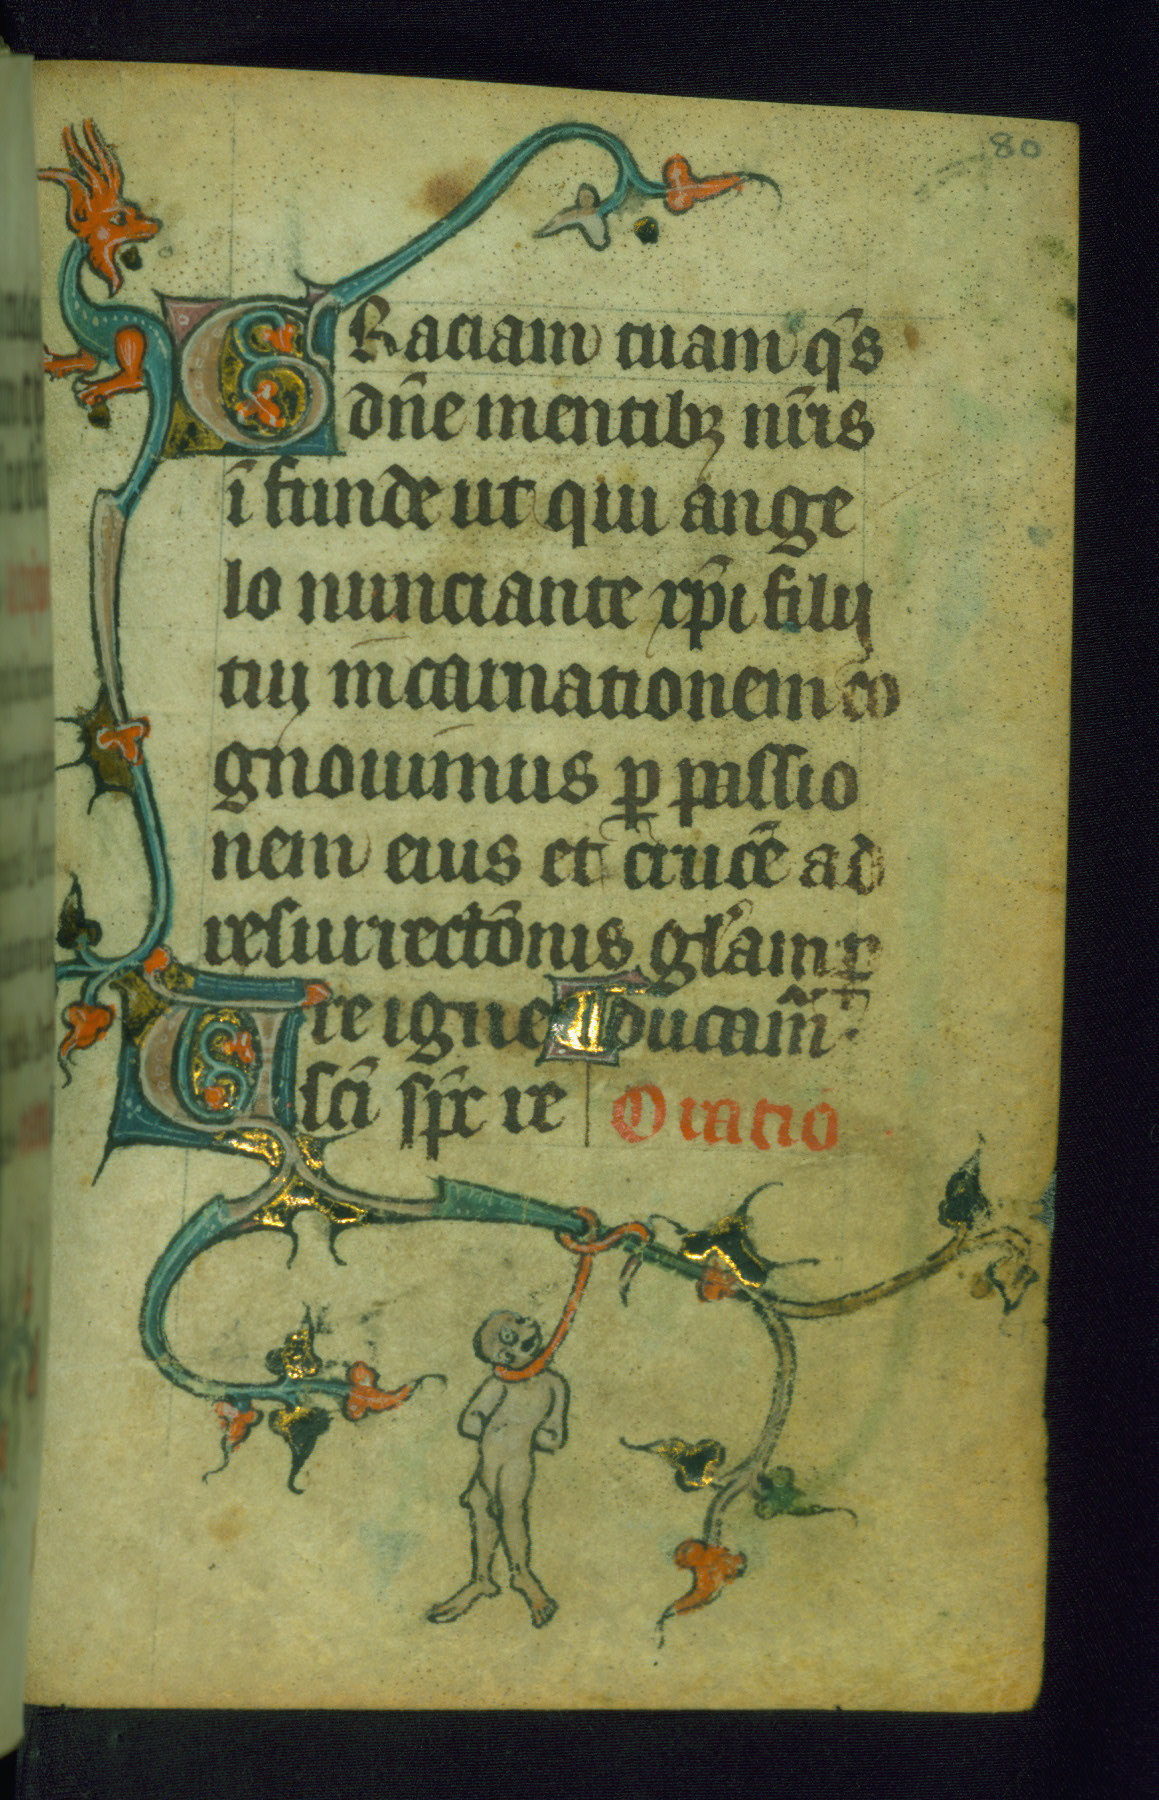 80
GRaciam tuam q̄s
dn̄e mentibꝫ nr̄is
ī funde ut qui ange
lo nunciante xp̄i filij
tuj incarnationem co
gnouimus ꝑ passio
nem eius et crucē ad
resurrectōnis gl̄am ꝑ
re igne Educam̄
Usc̄i sp̄c re Oratio